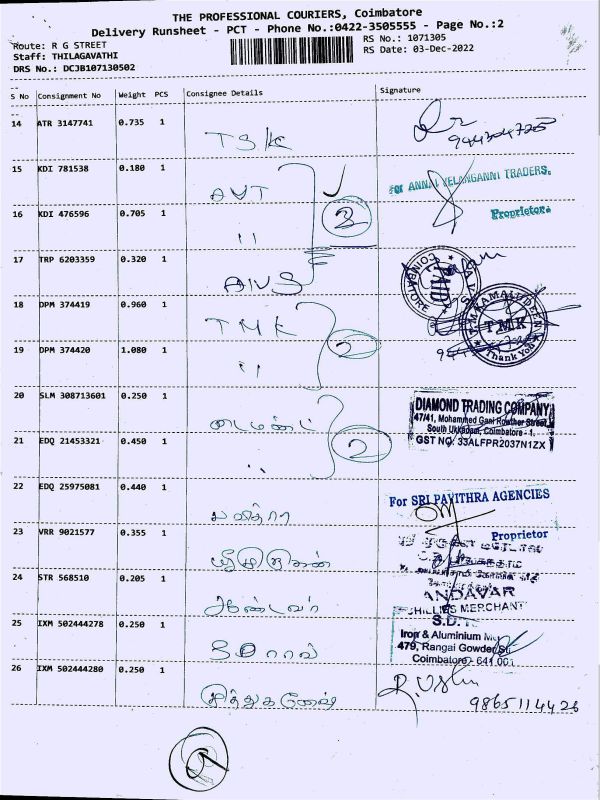 THE PROFESSIONAL COURIERS, Coimbatore
Delivery Runsheet - PCT - Phone No.:0422-3505555 - Page No.:2
Route: R G STREET
RS No.: 1071305
Staff: THILAGAVATHI
RS Date: 03-Dec-2022
DRS No.: DCJB107130502
S No Consignment No Weight PCS Consignee Details Signature
14 ATR 3147741 0.735 1 TSK
15 KDI 781538 0.180 1 AVT
For ANNAI VELANGANNI TRADERS.
16 KDI 476596 0.705 1 " 3
Proprietor.
17 TRP 6203359 0.320 1 AIVS
COIMBATORE PAID
18 DPM 374419 0.960 1 TMK
T.M.KAMALUDEEN TMK Thank You
19 DPM 374420 1.080 1 " 2
20 SLM 308713601 0.250 1 டைமண்ட்
DIAMOND TRADING COMPANY
47/41, Mohammed Gani Rowther Street,
South Ukkadam, Coimbatore - 1.
GST NO: 33ALFPR2037N1ZX
21 EDQ 21453321 0.450 1 " 2
22 EDQ 25975081 0.440 1 பவித்ரா
For SRI PAVITHRA AGENCIES
Proprietor
23 VRR 9021577 0.355 1
24 STR 568510 0.205 1 ஆண்டவர்
ANDAVAR
CHILLIES MERCHANT
25 IXM 502444278 0.250 1
Iron & Aluminium
479, Rangai Gowder St.
Coimbatore - 641 001
26 IXM 502444280 0.250 1 முத்துகணேஷ்
R. Usha
9865114426